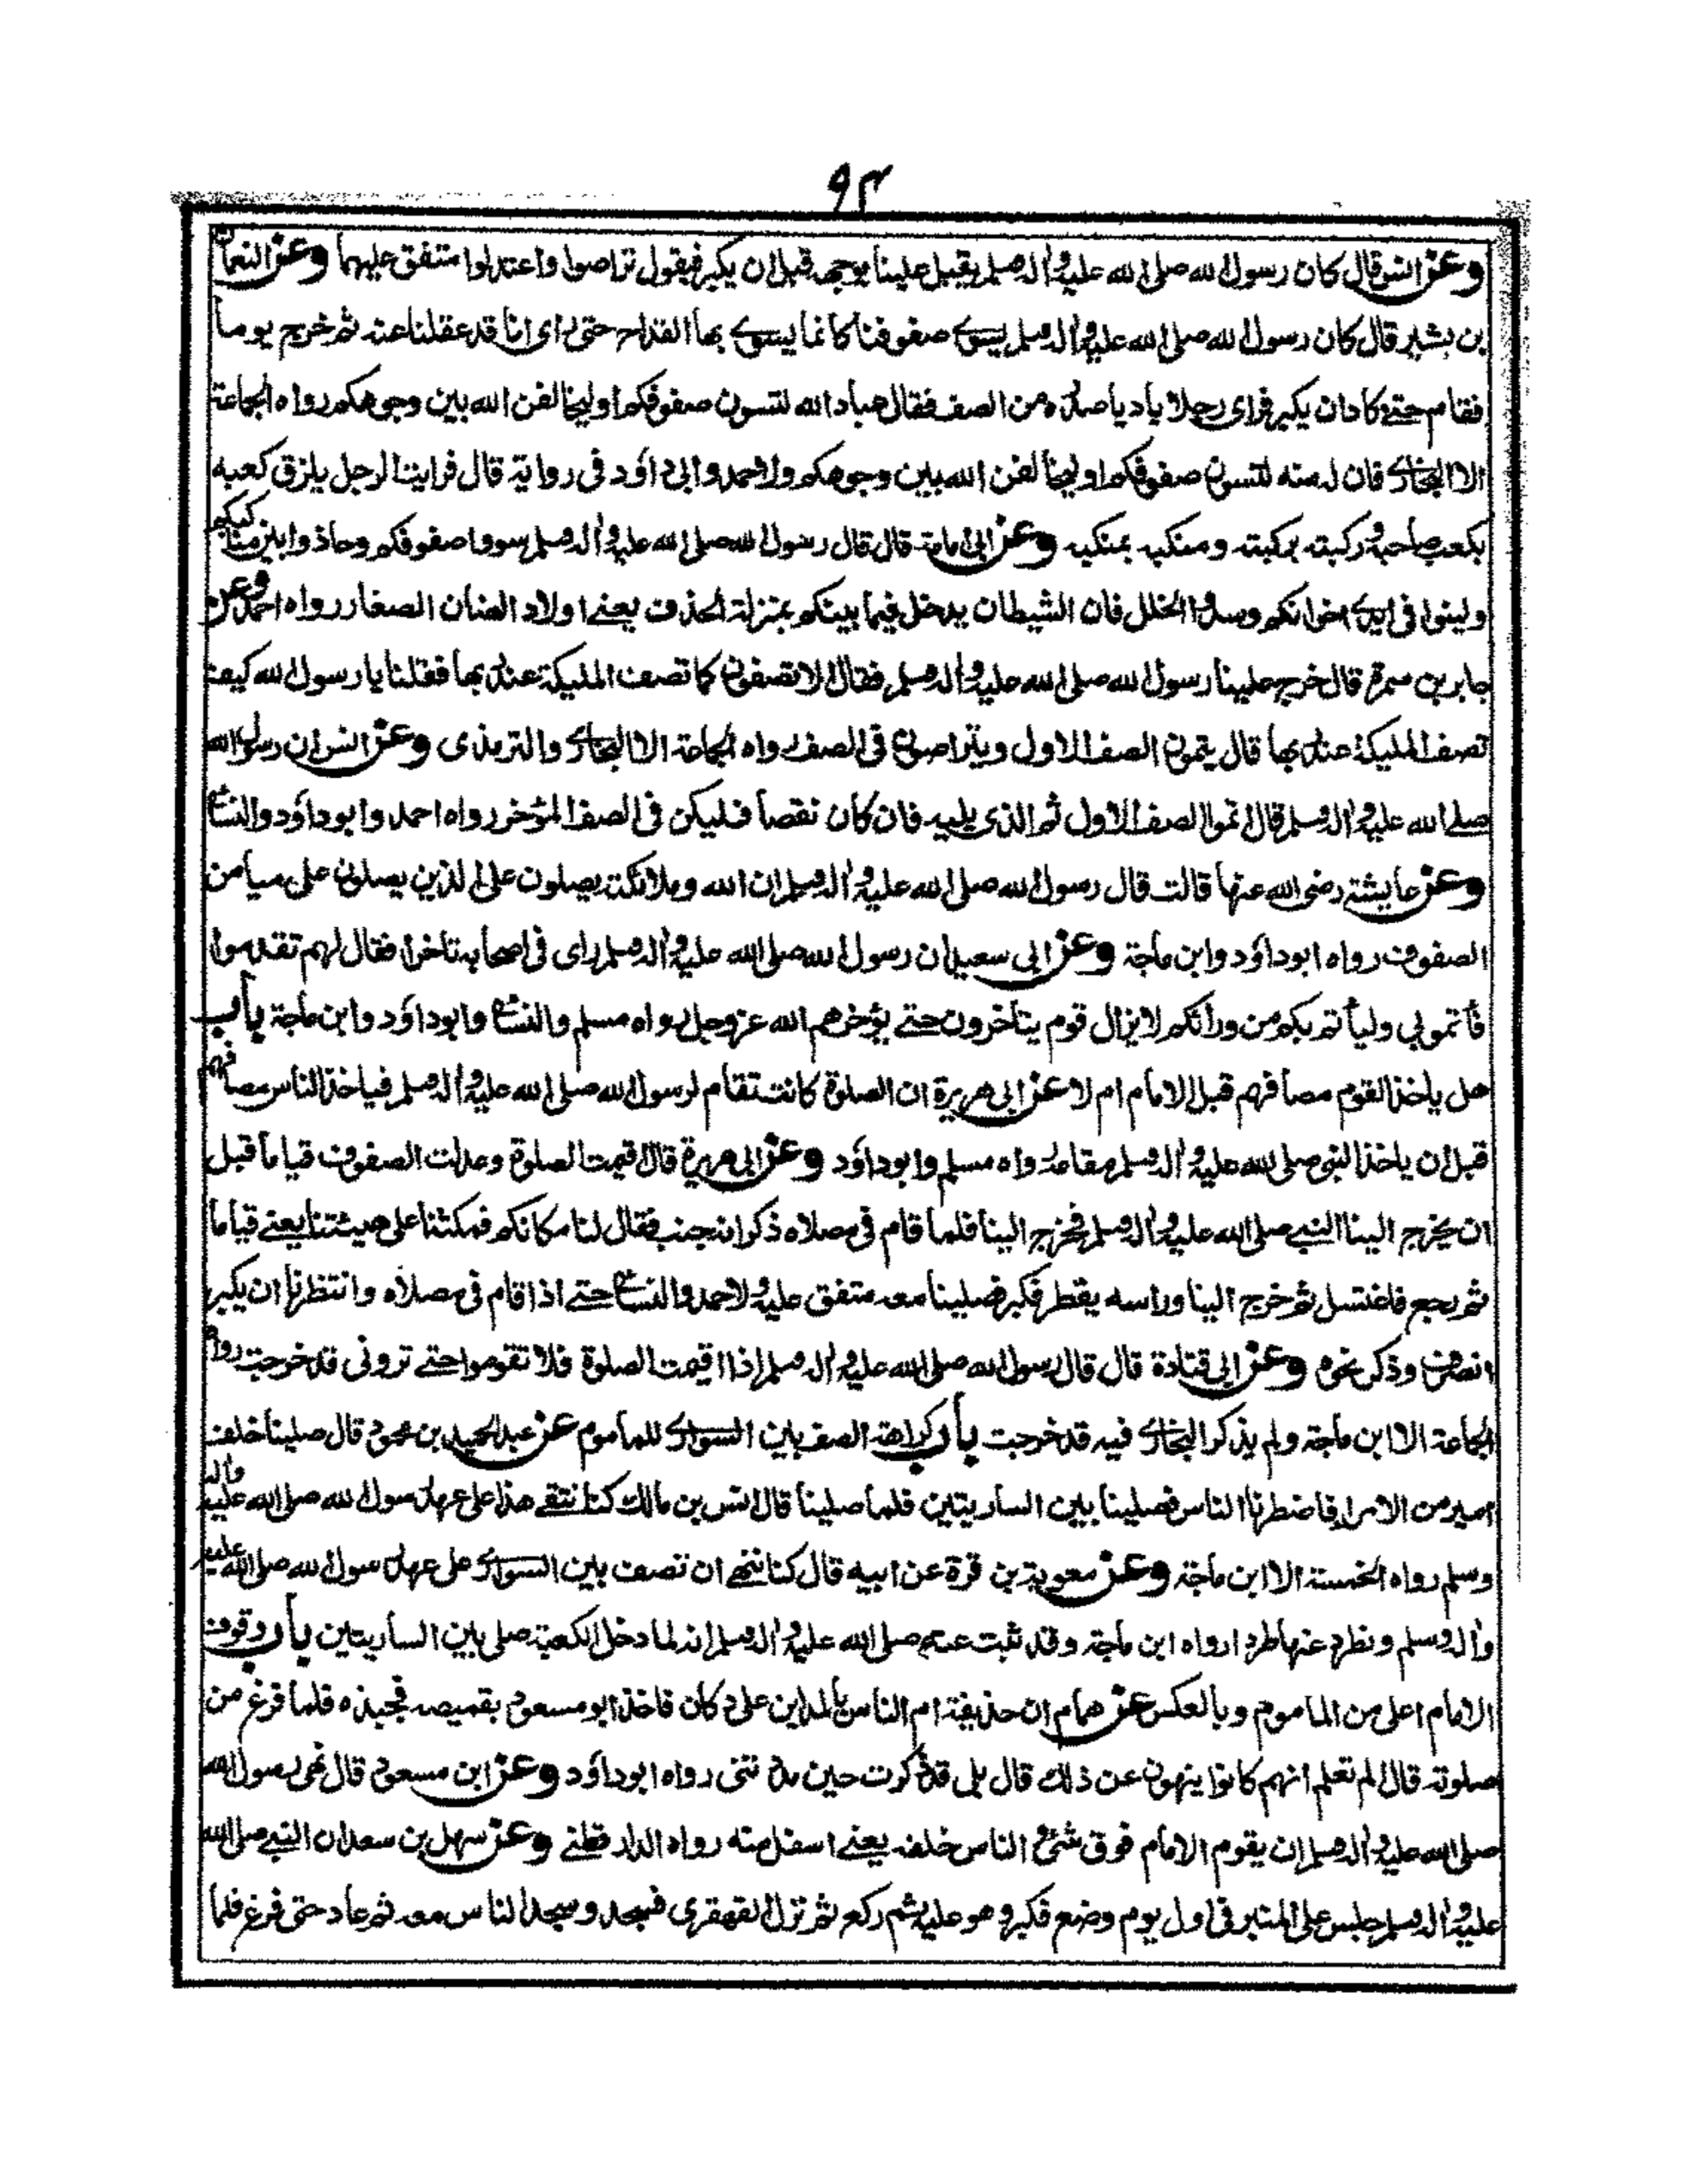 ٩٣
وعن انس قال كان رسول الله صلى الله عليه واله وسلم يقبل علينا بوجهه قبل ان يكبر فيقول تراصوا واعتدلوا متفق عليهما وعن النعمان
بن بشير قال كان رسول الله صلى الله عليه واله وسلم يسوى صفوفنا كانما يسوى بها القداح حتى راى انا قد عقلنا عنه ثم خرج يوما
فقام حتى كاد ان يكبر فراى رجلا باديا صدره من الصف فقال عباد الله لتسون صفوفكم او ليخالفن الله بين وجوهكم رواه الجماعة
الا البخارى فان له منه لتسون صفوفكم او ليخالفن الله بين وجوهكم ولاحمد وابى داؤد فى رواية قال فرايت الرجل يلزق كعبه
بكعب صاحبه وركبته بركبته ومنكبه بمنكبه وعن ابى امامة قال قال رسول الله صلى الله عليه واله وسلم سووا صفوفكم وحاذوا بين مناكبكم
ولينوا فى ايدى اخوانكم وسدوا الخلل فان الشيطان يدخل فيما بينكم بمنزلة الحذف يعنى اولاد الضان الصغار رواه احمد وعن
جابر بن سمرة قال خرج علينا رسول الله صلى الله عليه واله وسلم فقال الا تصفون كما تصف المليكة عند ربها فقلنا يا رسول الله كيف
تصف المليكة عند ربها قال يتمون الصف الاول ويتراصون فى الصف رواه الجماعة الا البخارى والترمذى وعن انس ان رسول الله
صلے الله عليه واله وسلم قال اتموا الصف الاول ثم الذى يليه فان كان نقصا فليكن فى الصف المؤخر رواه احمد وابو داؤد والنسائى
وعن عايشة رضى الله عنها قالت قال رسول الله صلى الله عليه واله وسلم ان الله وملائكته يصلون على الذين يصلون على ميامن
الصفوف رواه ابو داؤد وابن ماجة وعن ابى سعيد ان رسول الله صلى الله عليه واله وسلم راى فى اصحابه تاخرا فقال لهم تقدموا
فأتموا بي وليأتم بكم من ورائكم لا يزال قوم يتأخرون حتے يؤخرهم الله عز وجل رواه مسلم والنسائى وابو داؤد وابن ماجة باب
هل ياخذ القوم مصافهم قبل الامام ام لا عن ابى هريرة ان الصلوة كانت تقام لرسول الله صلى الله عليه واله وسلم فياخذ الناس مصافهم
قبل ان ياخذ النبى صلى الله عليه واله وسلم مقامه رواه مسلم وابو داؤد وعن ابى هريرة قال اقيمت الصلوة وعدلت الصفوف قياما قبل
ان يخرج الينا النبى صلى الله عليه واله وسلم فخرج الينا فلما قام فى مصلاه ذكر انه جنب فقال لنا مكانكم فمكثنا على هيئتنا يعنى قياما
ثم رجع فاغتسل ثم خرج الينا وراسه يقطر فكبر فصلينا معه متفق عليه ولاحمد والنسائى حتے اذا قام فى مصلاه وانتظرنا ان يكبر
انصرف وذكر نحوه وعن ابى قتادة قال قال رسول الله صلى الله عليه واله وسلم اذا اقيمت الصلوة فلا تقوموا حتے ترونى قد خرجت رواه
الجماعة الا ابن ماجة ولم يذكر البخارى فيه قد خرجت باب كراهة الصف بين السوارى للمأموم عن عبد الحميد بن محمود قال صلينا خلف
امير من الامراء فاضطرنا الناس فصلينا بين الساريتين فلما صلينا قال انس بن مالك كنا نتقے هذا على عهد رسول الله صلى الله عليه واله
وسلم رواه الخمسة الا ابن ماجة وعن معوية بن قرة عن ابيه قال كنا ننهى ان نصف بين السوارى على عهد رسول الله صلى الله عليه
واله وسلم ونطرد عنها طردا رواه ابن ماجة وقد ثبت عنه صلى الله عليه واله وسلم انه لما دخل الكعبة صلى بين الساريتين باب وقوف
الامام اعلى من الماموم وبالعكس عن همام ان حذيفة ام الناس بالمداين على دكان فاخذ ابو مسعود بقميصه فجبذه فلما فرغ من
صلوته قال الم تعلم انهم كانوا ينهون عن ذلك قال بلى قد ذكرت حين مددتنى رواه ابو داؤد وعن ابن مسعود قال نهى رسول الله
صلى الله عليه واله وسلم ان يقوم الامام فوق شئ والناس خلفه يعنے اسفل منه رواه الدارقطنے وعن سهل بن سعد ان النبے صلى الله
عليه واله وسلم جلس على المنبر فى اول يوم وضع فكبر وهو عليه ثم ركع ثم نزل القهقرى فسجد وسجد الناس معه ثم عاد حتى فرغ فلما